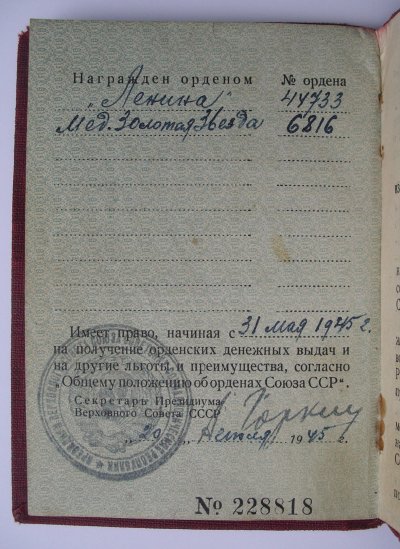 Награжден орденом № ордена
„Ленина" 44733
Мед. Золотая Звезда 6816
Имеет право, начиная с 31 мая 1945 г.
на получение орденских денежных выдач и
на другие льготы и преимущества, согласно
„Общему положению об орденах Союза ССР".
Секретарь Президиума
Верховного Совета СССР Горкин
„20 „ 1945 г.
№ 228818